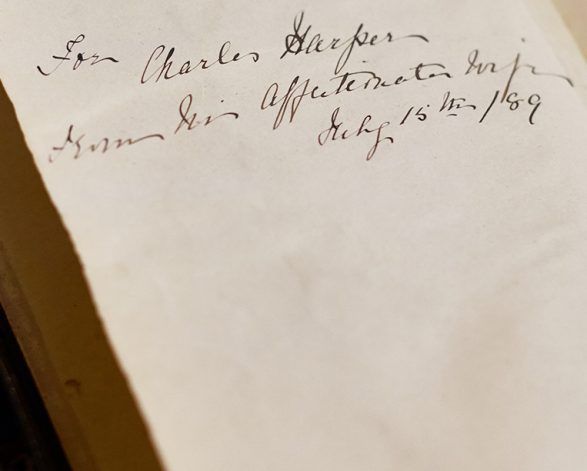 For Charles Harper
From his Affectionate Wife
July 15th /89